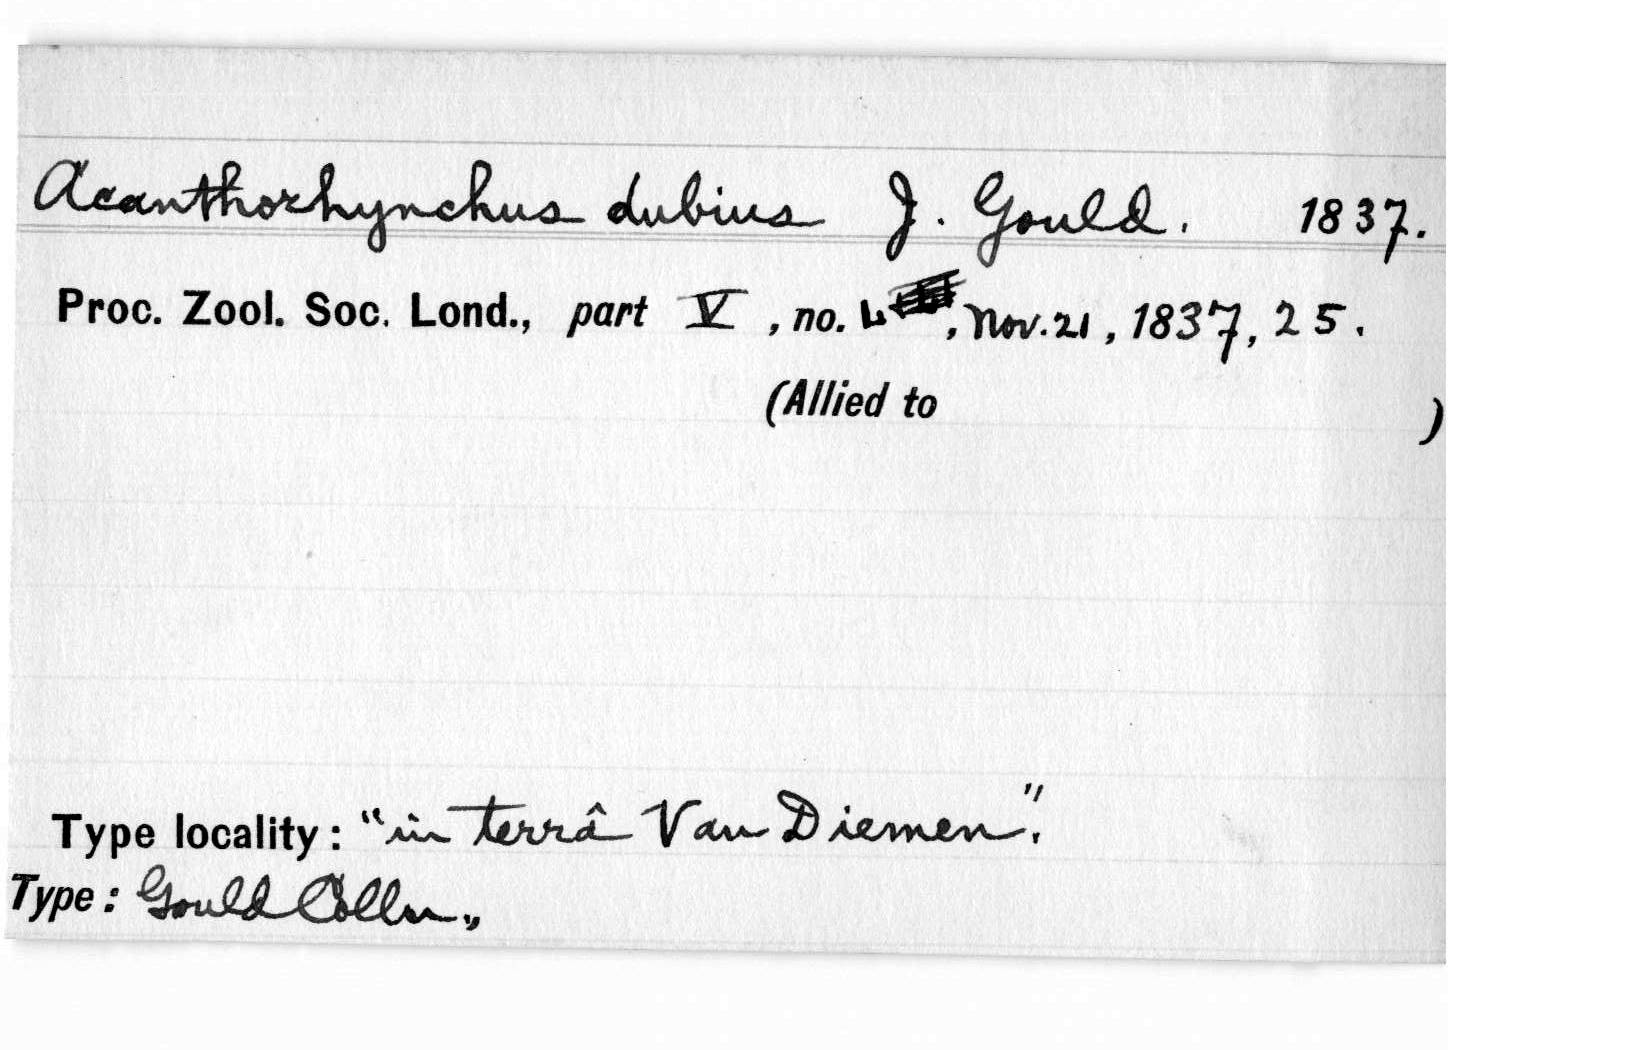 Acanthorhynchus dubius J. Gould. 1837.
Proc. Zool. Soc. Lond., part V, no. , Nov. 21, 1837, 25.
(Allied to )
Type locality: "in terrâ Van Diemen".
Type: Gould Colln.,